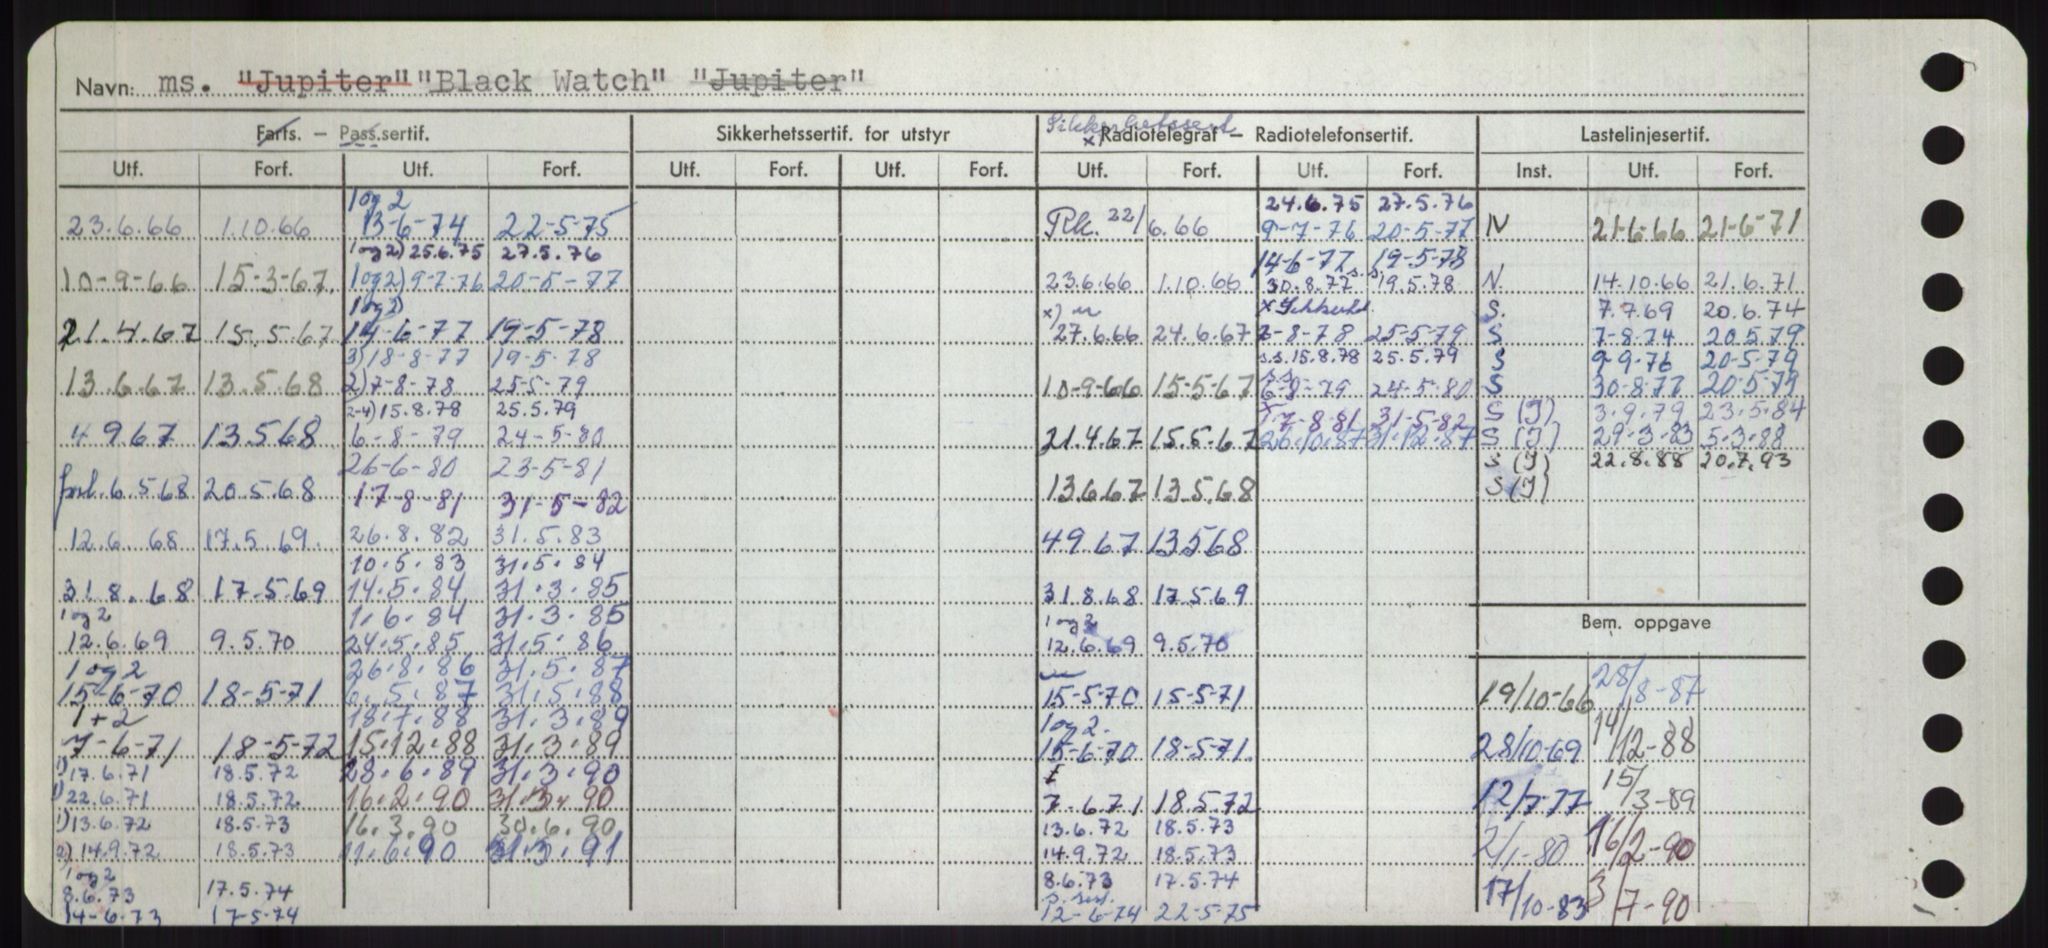 Navn: ms. "Jupiter" "Black Watch" "Jupiter"
Farts. – Pass.sertif.
Utf. Forf. Utf. Forf.
23.6.66 1.10.66
10-9-66 15-3-67.
21.4.67 15.5.67
13.6.67 13.5.68
4 9 67 13.5 68
forl. 6.5 68 20.5.68
12.6. 68 17.5.69.
31.8.68 17.5.69
1 og 2
12.6.69 9.5.70
1 og 2
15-6-70 18-5-71
1+2
7-6-71 18-5-72
1) 17.6.71 18.5.72
1) 22.6.71 18.5.72
1) 13.6.72 18.5.73
2) 14.9.72 18.5.73
1 og 2
8.6.73 17.5.74
14-6-73 17-5-74
1 og 2
13-6-74 22-5-75
1 og 2) 25.6.75 27.5.76
1 og 2) 9-7-76 20-5-77
1 og 2)
14-6-77 19-5-78
3) 18-8-77 19-5-78
2) 7-8-78 25-5-79
2-4) 15.8.78 25.5.79
6-8-79 24-5-80
26-6-80 23-5-81
17-8-81 31-5-82
26.8.82 31.5.83
10.5.83 31.5.84
14.5.84 31.3.85
1.6.84 31.3.85
24.5.85 31.5.86
26.8.86 31.5.87
6.5.87 31.5.88
18.7.88 31.3.89
15.12.88 31.3.89
28.6.89 31.3.90
16.2.90 31.3.90
16.3.90 30.6.90
11.6.90 31.3.91
Sikkerhetssertif. for utstyr
Utf. Forf. Utf. Forf.
Sikkerhetssert
x) Radiotelegraf – Radiotelefonsertif.
Utf. Forf. Utf. Forf.
Rk. 22/6.66
23.6.66 1.10.66
x)
27.6.66 24.6.67
10-9-66 15-5-67
21.4.67 15.5.67
13.6.67 13.5.68
4 9.67 13.5 68
31.8.68 17.5.69
1 og 2
12.6.69 9.5.70
15-5-70 15-5-71
1 og 2.
15-6-70 18-5-71.
7-6.71 18.5.72
13.6.72 18.5.73
14.9.72 18.5.73
8.6.73 17.5.74
s. sert.
12-6-74 22-5-75
24.6.75 27.5.76
9-7-76 20-5-77
14-6-77 19-5-78
s.s.
30.8.77 19.5.78
7-8-78 25-5-79
s.s. 15.8.78 25.5.79
s.s
6-8-79 24-5-80
17-8-81 31-5-82
26.10.87 31.12.87
Lastelinjesertif.
Inst. Utf. Forf.
N 21-6-66 21-6-71
N. 14.10.66 21.6.71
S. 7.7.69 20.6.74
S 7-8.74 20.5.79
S 9-9-76 20-5-79
S 30-8-77 20-5-79
S (J) 3.9.79 23.5.84
S (J) 29.3.83 5.3.88
S (J) 22.8.88 20.7.93
S (J)
Bem. oppgave
19/10-66 28/8-87
28/10-69 14/12-88
12/7-77 15/3-89
2/1-80 16/2-90
17/10-83 3/7-90